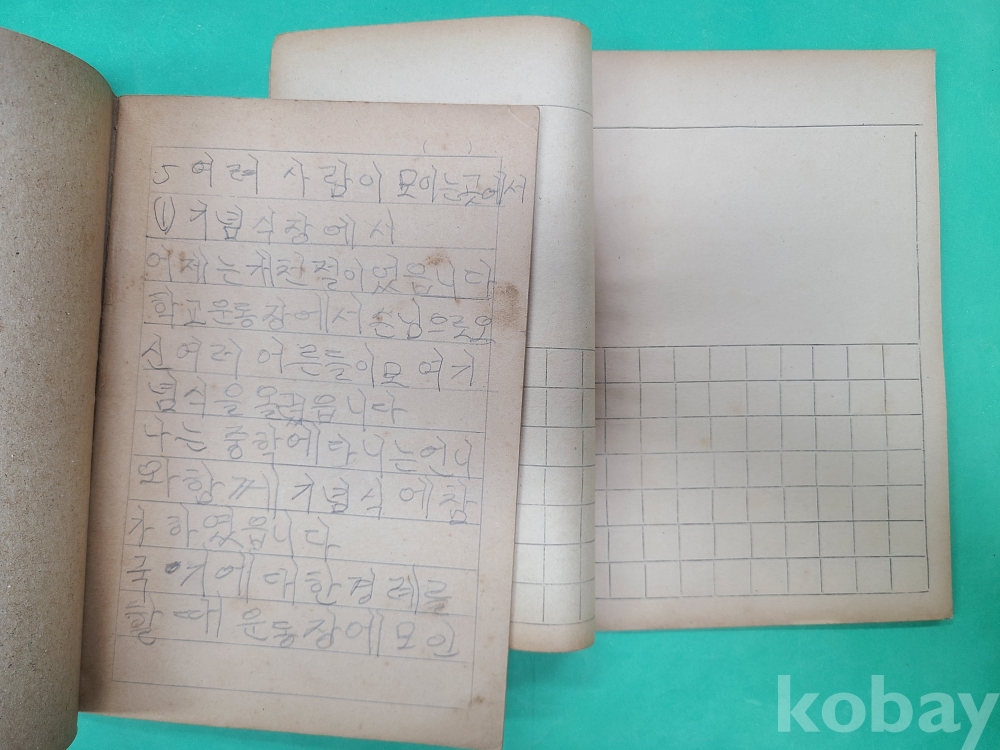 ( )
5 여러 사람이 모이는곳에서
① 기념식장에서
어제는개천절이었읍니다
학교운동장에서 손님으로오
신 여러 어른들이모여기
념식을올렸읍니다
나는 중학에다니는언니
와함께 기념식에참
가하였읍니다
국기에 대한경례를
할때 운동장에모인
kobay